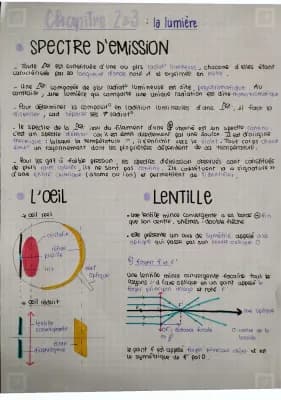 Chapitre 2 et 3 : la lumière
SPECTRE D'EMISSION
- Toute est constituée d'une ou plrs radiat° lumineuses, chacune d'elles étant
caractérisée par sa longueur d'onde notée λ et exprimée en
- Une composée de plrs radiat° lumineuses est dite polychromatique. Au
contraire, une lumière qui comporte une unique radiation est dite monochromatique
- Pour déterminer la composit° en radiation lumineuses d'une , il faut la
disperser, càd séparer ses radiat°
- Le spectre de la issu du filament d'une est un spectre continu
c'est un spectre d'émission car il est émis directement par une source. Il est d'origine
thermique : lorsque la température , il s'enrichit vers le violet. Tout corps chaud
émet un rayonnement dont les propriétés dépendent de sa température.
- Pour les gaz à faible pression, les spectres d'émission observés sont constitués
de plrs raies colorés, ils ne sont pas continu. Ils constituent la « signature »
d'une entité chimique (atome ou ion) et permettent de l'identifier.
L'OEIL
→ œil réel
cristallin
rétine
pupille
iris
nerf
optique
→ œil réduit
lentille
convergente
écran
diaphragme
LENTILLE
- une lentille mince convergente a ses bords fin
que son centre, symbole : double flèche
- elle présente un axe de symétrie appelé axe
optique qui passe par son centre optique O
Foyer F et F'
Une lentille mince convergente focalise tout les
rayons à l'axe optique en un point appelé
foyer principal image et noté F'
axe optique
distance focale
O centre de la
lentille
le point F est appelé foyer principal objet et est
le symétrique de F' par O